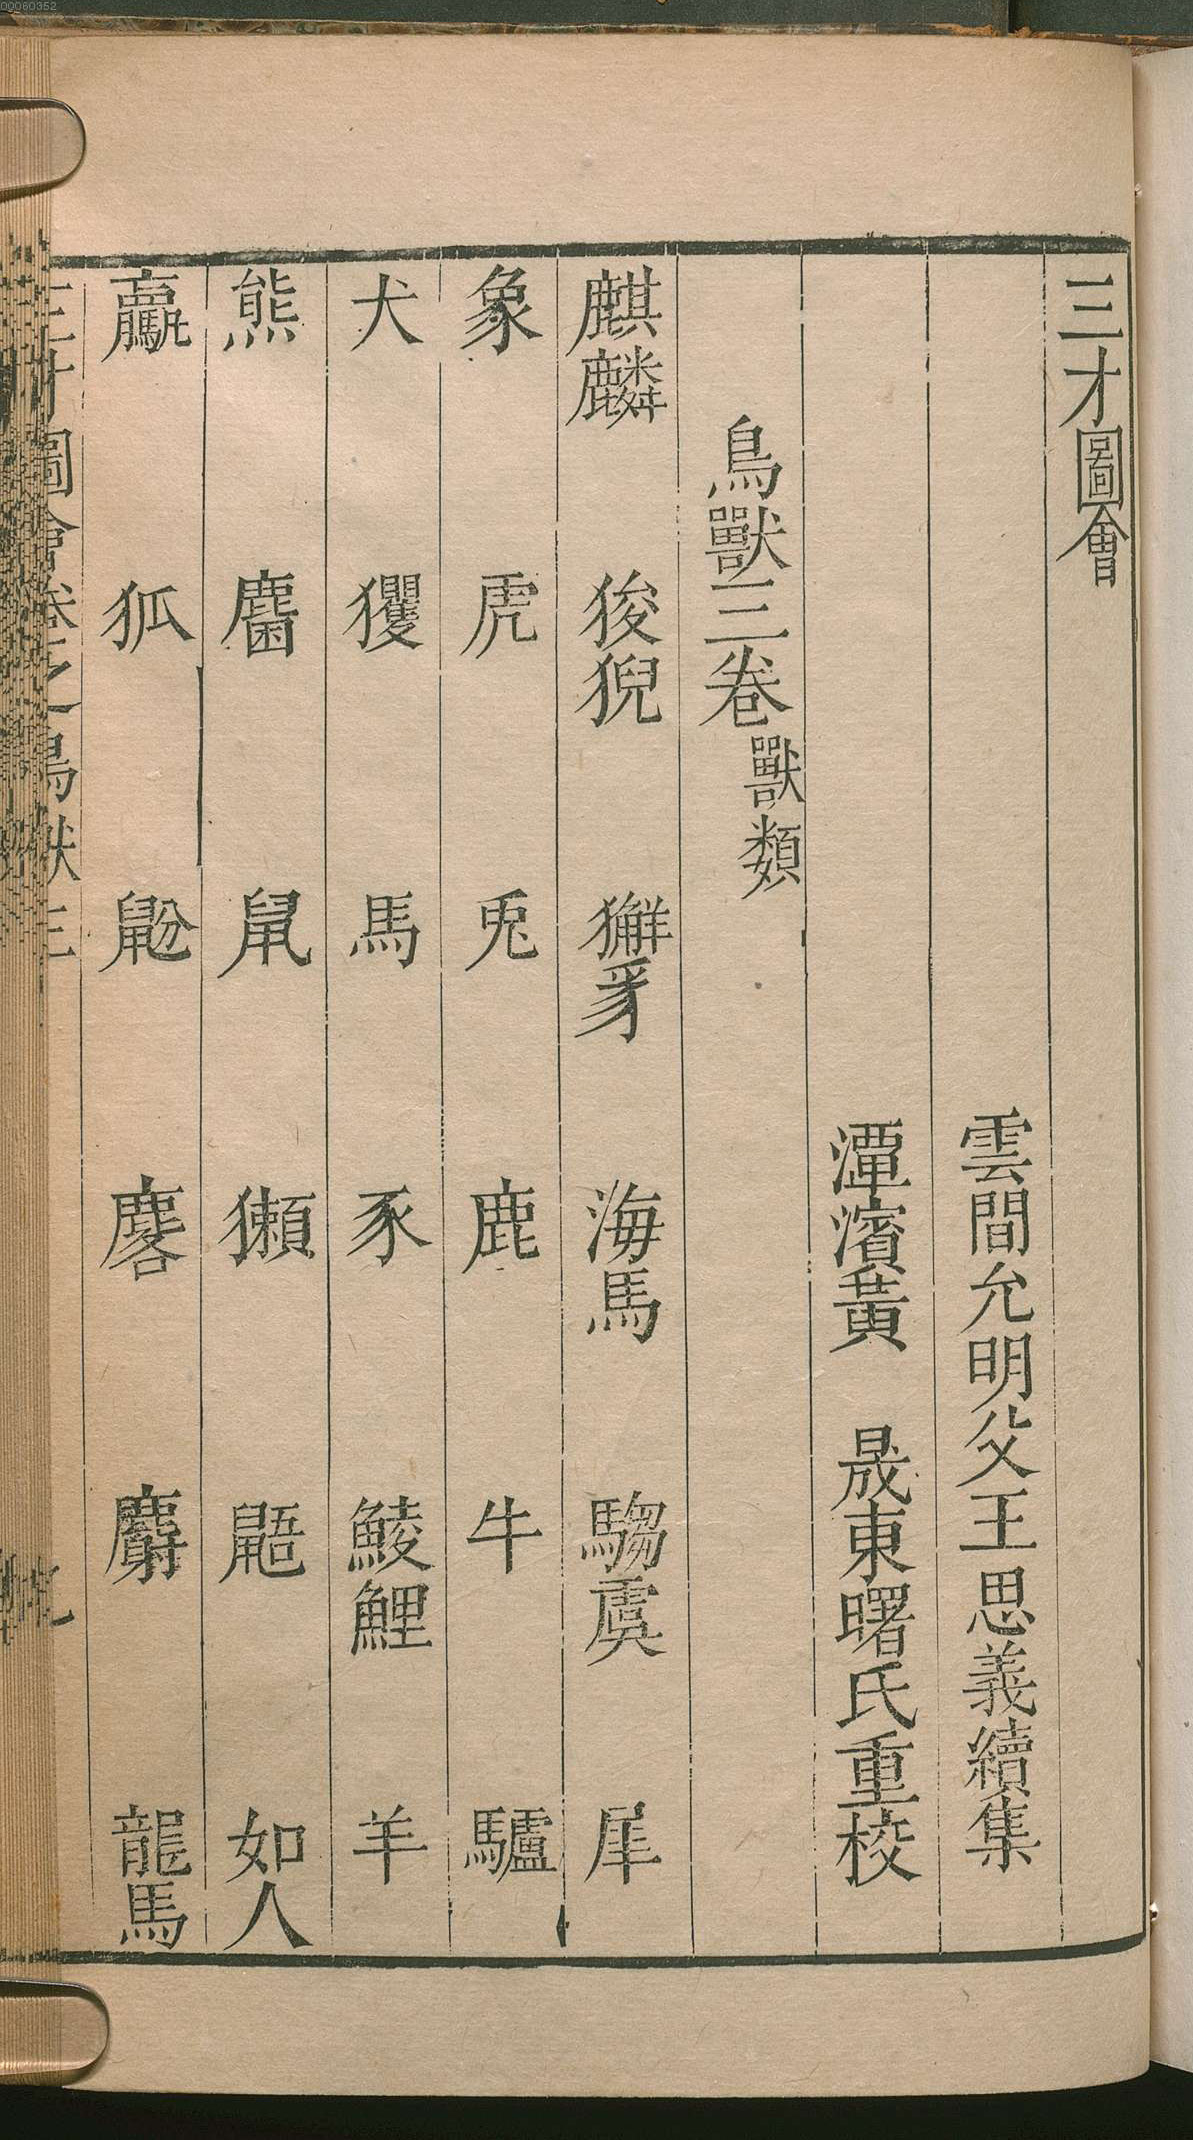 00060352
三才圖會
雲間允明父王思義續集
潭濱黃 晟東曙氏重校
鳥獸三卷 獸類
麒麟 狻猊 獬豸 海馬 騶虞 犀
象 虎 兎 鹿 牛 驢
犬 玃 馬 豕 鯪鯉 羊
熊 麕 鼠 獺 鼯 如人
驘 狐 鼢 麔 麝 龍馬
三才圖會卷之鳥獸三